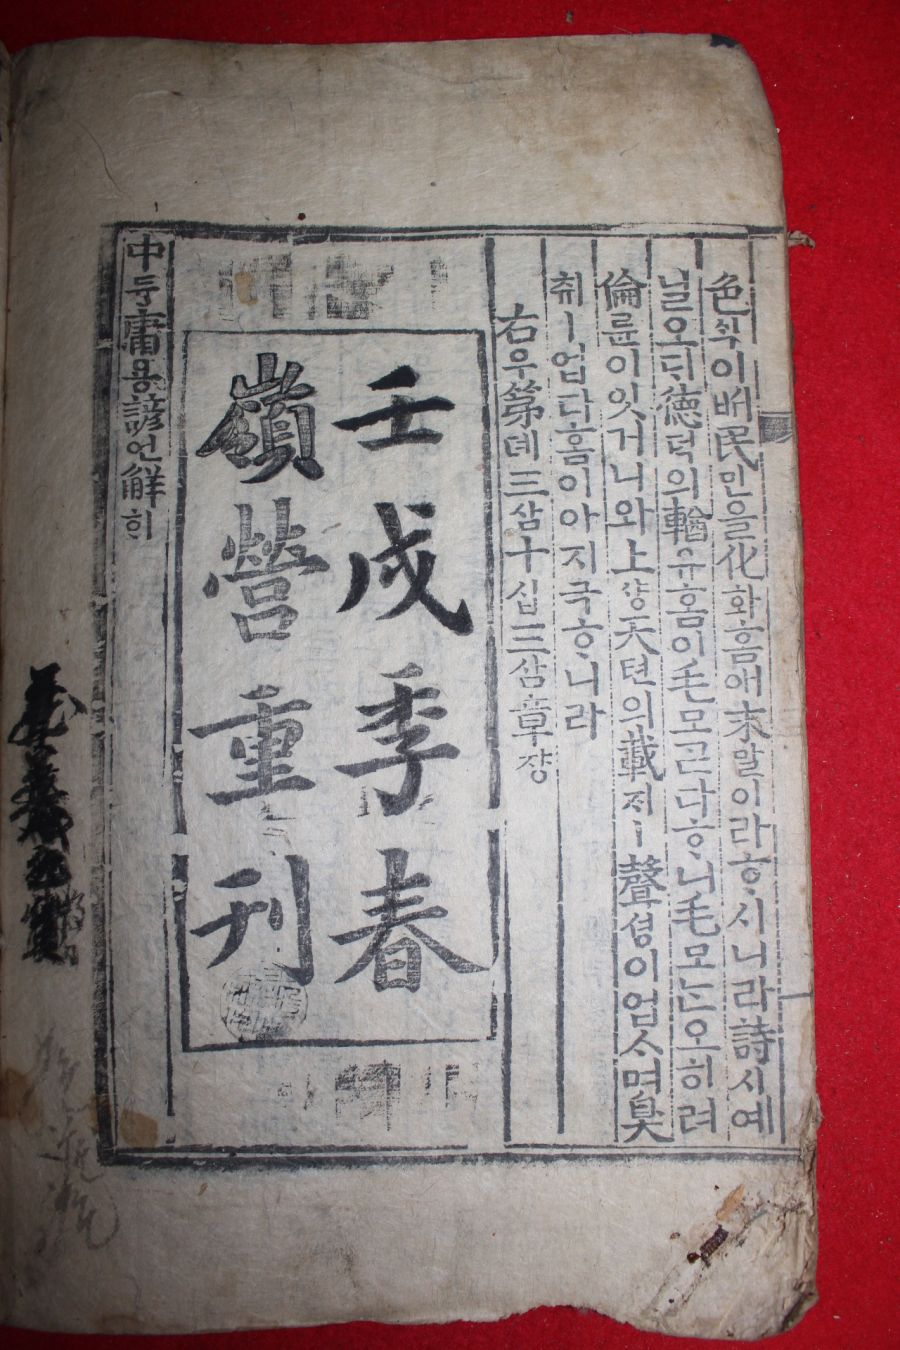 色ᄉᆡᆨ이 ᄡᅥ 民민을 化화홈애 末말이라 ᄒᆞ시니라 詩시예
닐오ᄃᆡ 德덕의 輶유홈이 毛모 ᄀᆞᆮ다 ᄒᆞ니 毛모ᄂᆞᆫ 오히려
倫륜이 잇거니와 上샹天텬의 載ᄌᆡ ㅣ 聲셩이 업스며 臭
ᄎᆔㅣ 업다 홈이아 지극ᄒᆞ니라
右우 第뎨三삼十십三삼章쟝
壬戌季春
嶺營重刊
中듕庸용諺언解ᄒᆡ